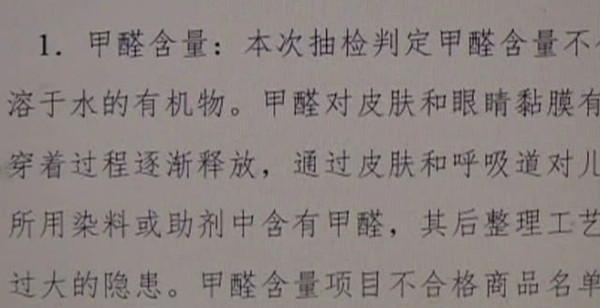 1. 甲醛含量：本次抽检判定甲醛含量不
溶于水的有机物。甲醛对皮肤和眼睛黏膜有
穿着过程逐渐释放，通过皮肤和呼吸道对儿
所用染料或助剂中含有甲醛，其后整理工艺
过大的隐患。甲醛含量项目不合格商品名单